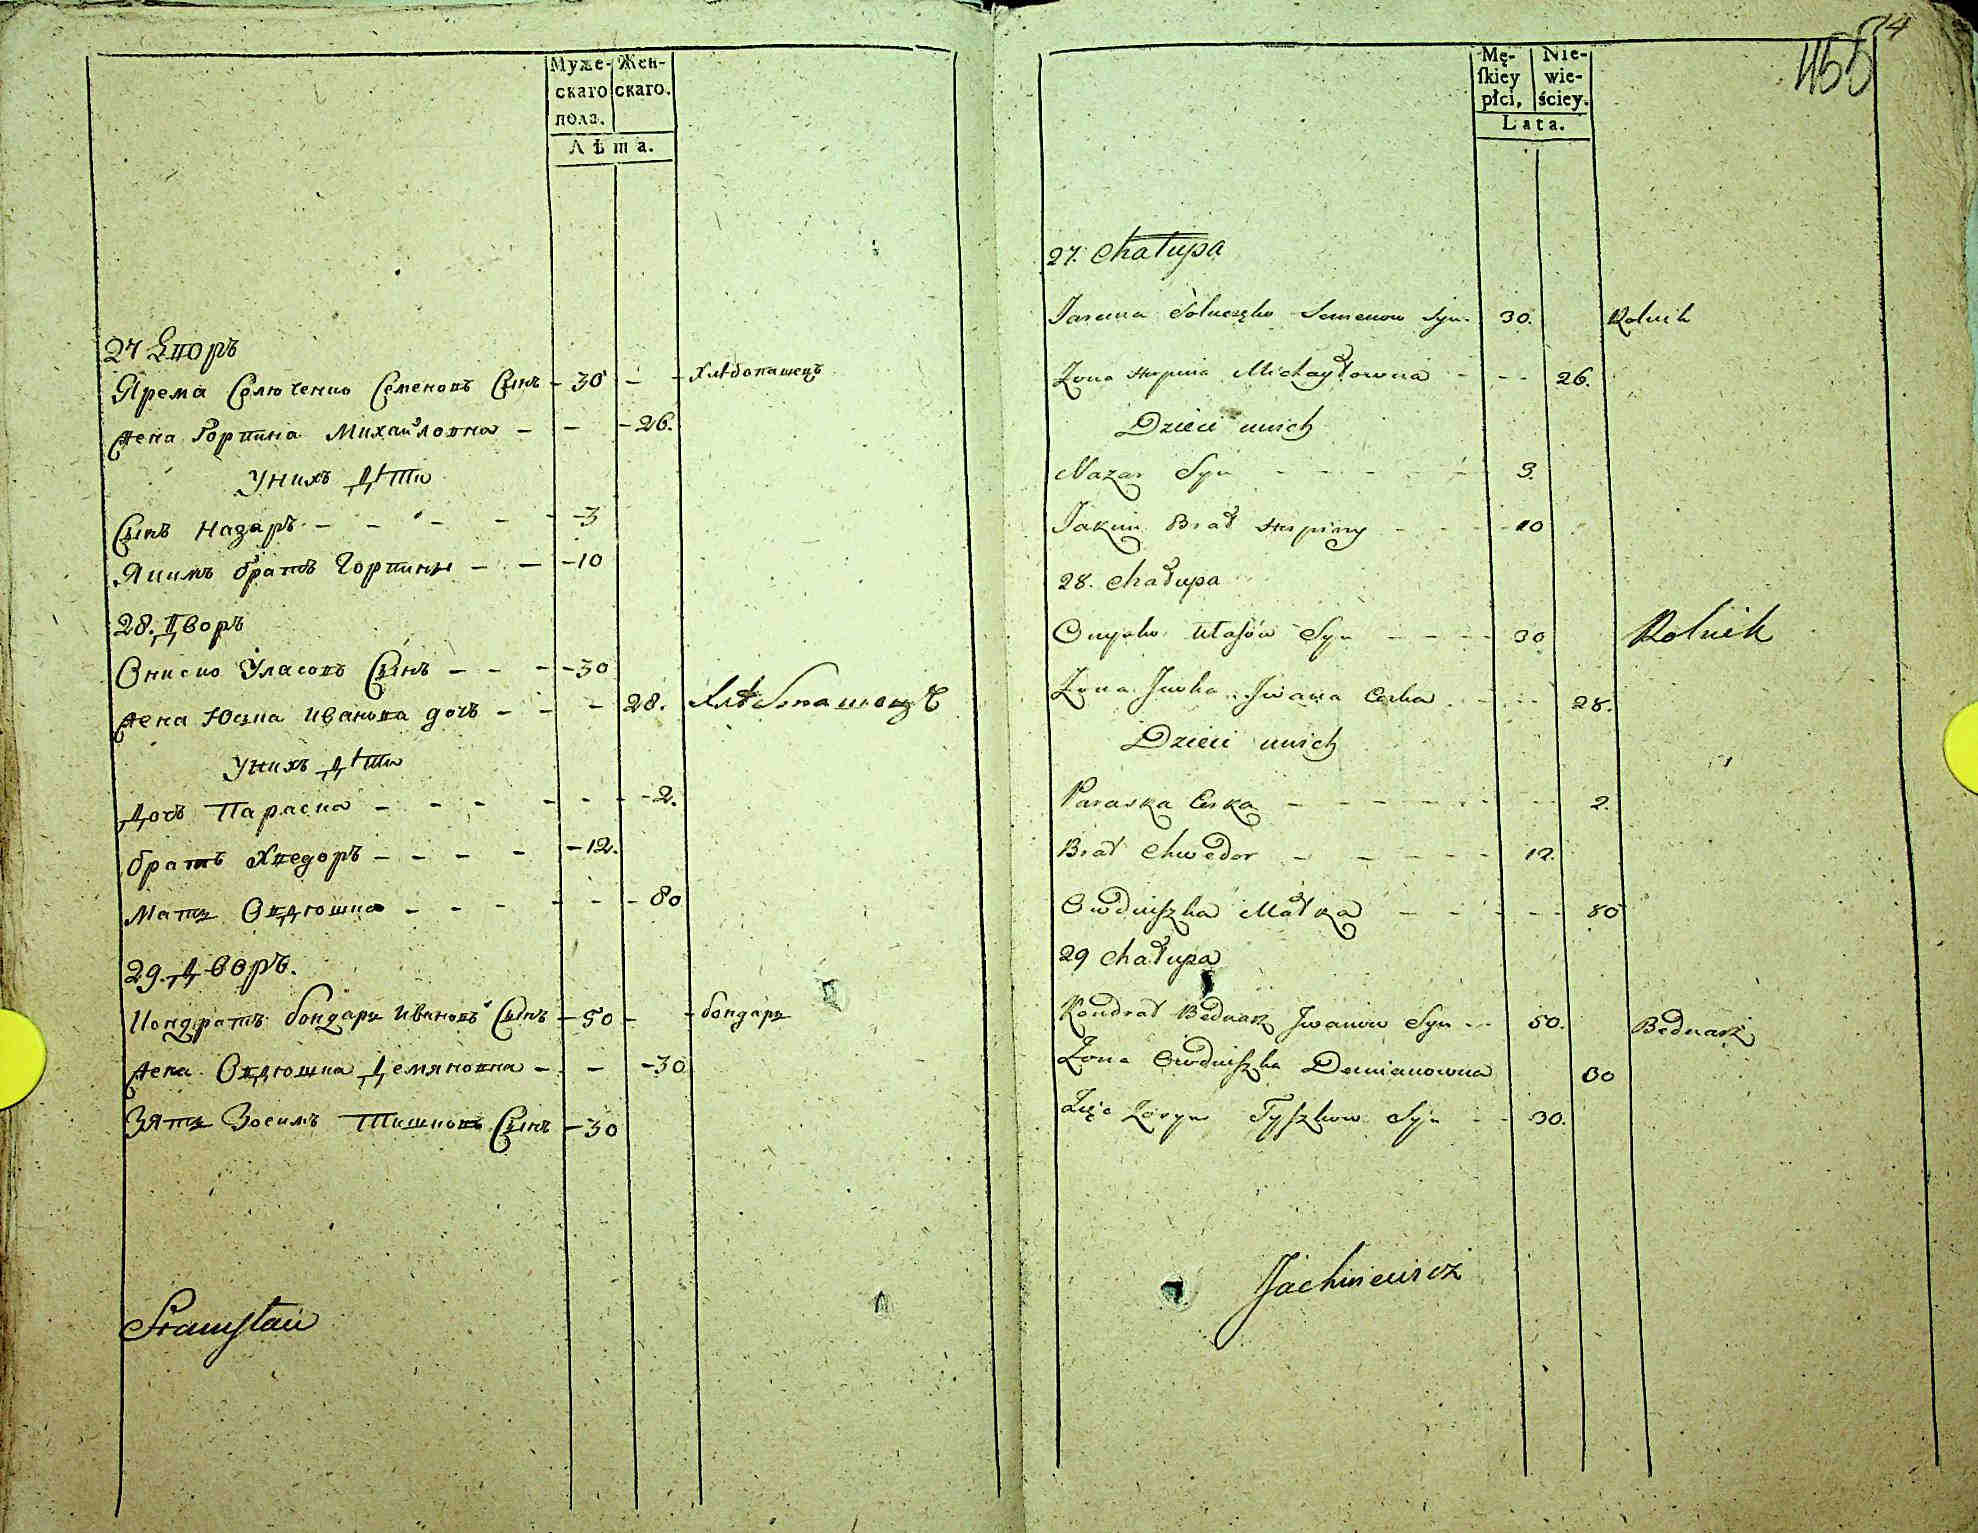 Муже-
скаго
пола.
Жен-
скаго.
Лѣта.
27 Дворъ
Ярема Солюченко Семеновъ Сынъ - 30 - - Хлѣбопашецъ
Жена Горпина Михайловна - - - 26.
Унихъ Дѣти
Сынъ Назаръ - - - - - 3
Якимъ братъ Горпины - - - 10
28. Дворъ
Ониско Уласовъ Сынъ - - - - 30
Жена Юхна Иванова дочь - - - 28. Хлѣбопашецъ
Унихъ Дѣти
Дочь Параска - - - - - - 2.
братъ Хведоръ - - - - - 12.
Мать Овдюшка - - - - - - 80
29. Дворъ.
Кондратъ бондарь Ивановъ Сынъ - 50 - - бондарь
Жена Овдюшка Демяновна - - - 30
Зять Зосимъ Тишковъ Сынъ - 30
Stanisław
74
455
Mę-
ſkiey
płci,
Nie-
wie-
ściey.
Lata.
27. Chałupa
Jarema Soluczęko Semenow Syn. 30. Rolnik
Żona Horpina Michayłowna - - - 26.
Dzieci unich
Nazar Syn - - - - - 3.
Jakim Brat Horpiny - - - - 10
28. Chałupa
Onysko Ułasów Syn - - - - 30 Rolnik
Żona Juchna Jwana Corka - - - 28.
Dzieci unich
Paraska Corka - - - - - - - 2.
Brat Chwedor - - - - - 12.
Owdiuszka Matka - - - - - 80
29 Chałupa
Kondrat Bednarz Jwanow Syn - - 50. Bednarz
Żona Owdiuszka Demianowna 30
Zięć Zosym Tyszkow Syn - - 30.
Jachniewicz